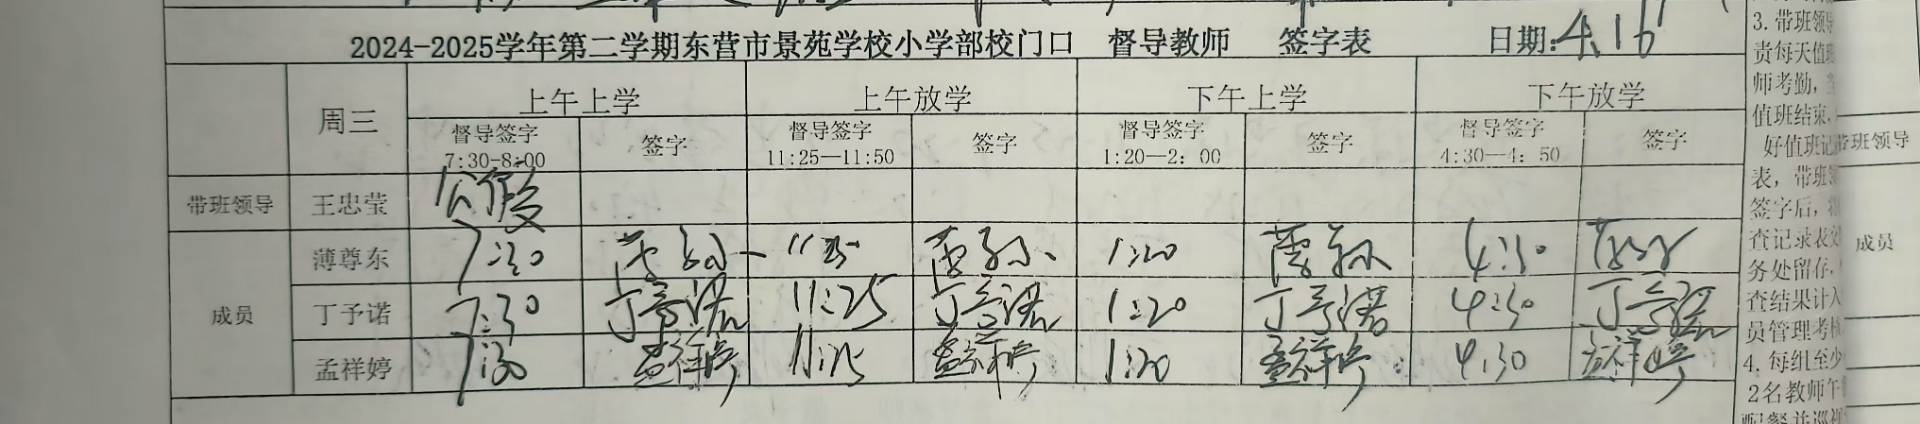 2024-2025学年第二学期东营市景苑学校小学部校门口 督导教师 签字表 日期:4.16
周三 上午上学 上午放学 下午上学 下午放学
督导签字 签字 督导签字 签字 督导签字 签字 督导签字 签字
7:30-8:00 11:25—11:50 1:20—2:00 4:30—4:50
带班领导 王忠莹
成员
薄尊东 7:30 1:20 4:30
丁予诺 7:30 丁予诺 11:25 丁予诺 1:20 丁予诺 4:30 丁予诺
孟祥婷 7:30 孟祥婷 11:25 孟祥婷 1:20 孟祥婷 4:30 孟祥婷
3.带班领
责每天值
师考勤,
值班结束,
好值班记
表,带班
签字后,
查记录表
务处留存,
查结果计入
员管理考
4.每组至少
2名教师午
带班领导
成员